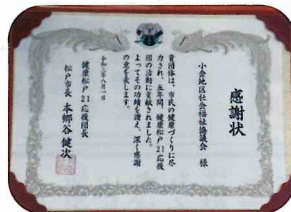 感謝状
小金地区社会福祉協議会 様
貴団体は、市民の健康づくりに尽
力され、五年間、健康松戸21応援
団の活動に貢献されました。
よってその功績を讃え、深く感謝
の意を表します。
令和三年八月一日
健康松戸21応援団長
松戸市長 本郷谷健次